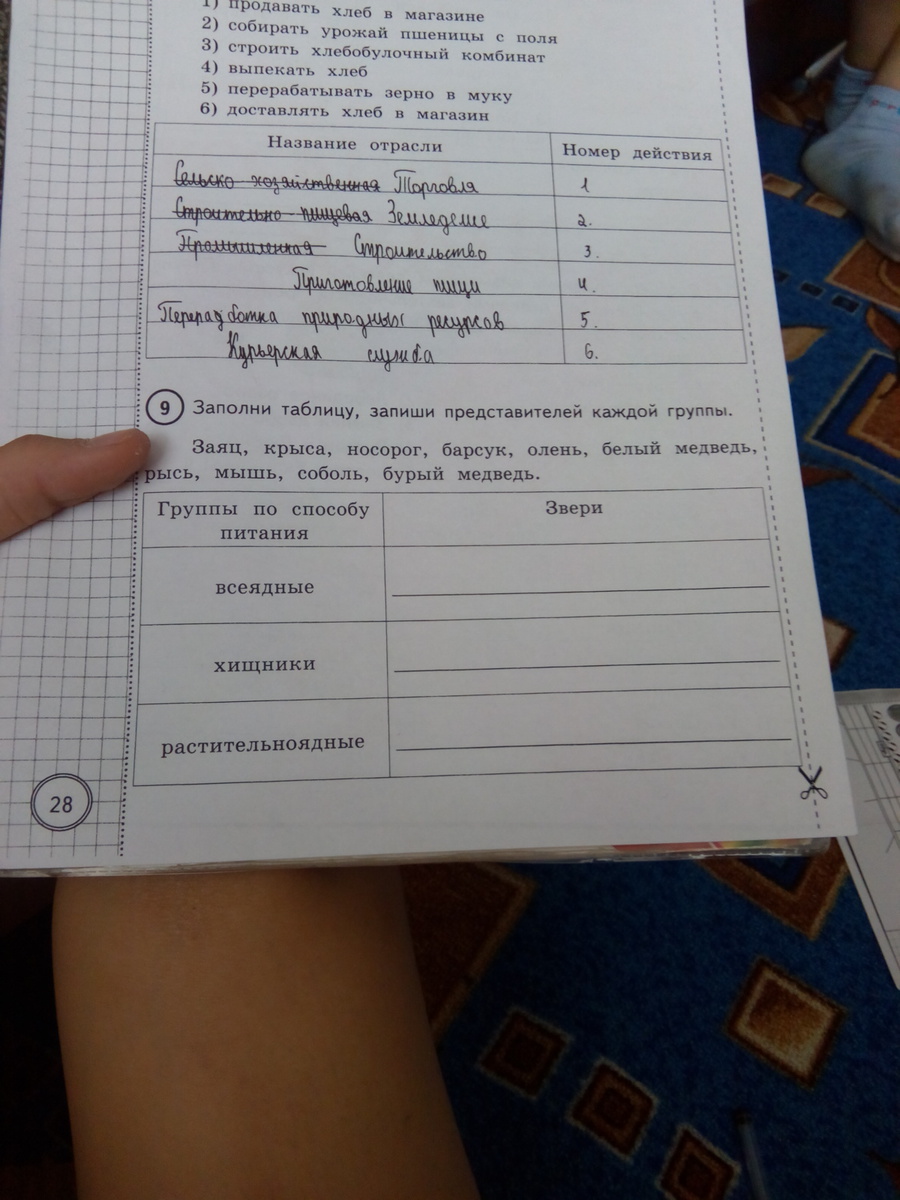 1) продавать хлеб в магазине
2) собирать урожай пшеницы с поля
3) строить хлебобулочный комбинат
4) выпекать хлеб
5) перерабатывать зерно в муку
6) доставлять хлеб в магазин
Название отрасли Номер действия
Сельско хозяйственная Торговля 1
Строительно пищевая Земледелие 2.
Промышленная Строительство 3.
Приготовление пищи 4.
Переработка природных ресурсов 5.
Курьерская служба 6.
9 Заполни таблицу, запиши представителей каждой группы.
Заяц, крыса, носорог, барсук, олень, белый медведь,
рысь, мышь, соболь, бурый медведь.
Группы по способу Звери
питания
всеядные
хищники
растительноядные
28